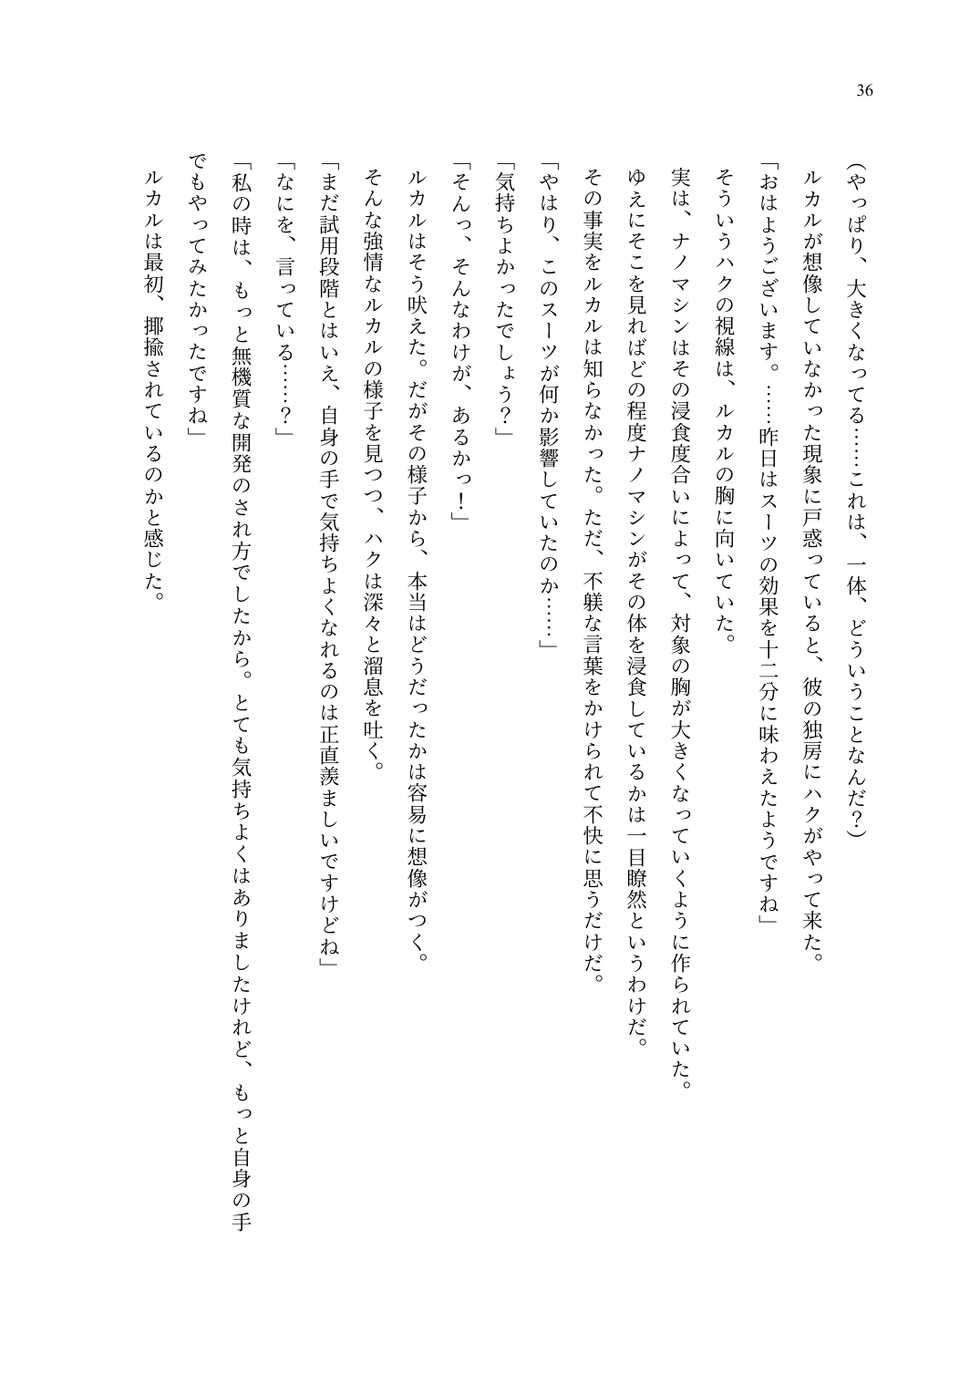 36
(やっぱり、大きくなってる……これは、一体、どういうことなんだ？)
ルカルが想像していなかった現象に戸惑っていると、彼の独房にハクがやって来た。
「おはようございます。……昨日はスーツの効果を十二分に味わえたようですね」
そういうハクの視線は、ルカルの胸に向いていた。
実は、ナノマシンはその浸食度合いによって、対象の胸が大きくなっていくように作られていた。
ゆえにそこを見ればどの程度ナノマシンがその体を浸食しているかは一目瞭然というわけだ。
その事実をルカルは知らなかった。ただ、不躾な言葉をかけられて不快に思うだけだ。
「やはり、このスーツが何か影響していたのか……」
「気持ちよかったでしょう？」
「そんっ、そんなわけが、あるかっ！」
ルカルはそう吠えた。だがその様子から、本当はどうだったかは容易に想像がつく。
そんな強情なルカルの様子を見つつ、ハクは深々と溜息を吐く。
「まだ試用段階とはいえ、自身の手で気持ちよくなれるのは正直羨ましいですけどね」
「なにを、言っている……？」
「私の時は、もっと無機質な開発のされ方でしたから。とても気持ちよくはありましたけれど、もっと自身の手
でもやってみたかったですね」
ルカルは最初、揶揄されているのかと感じた。